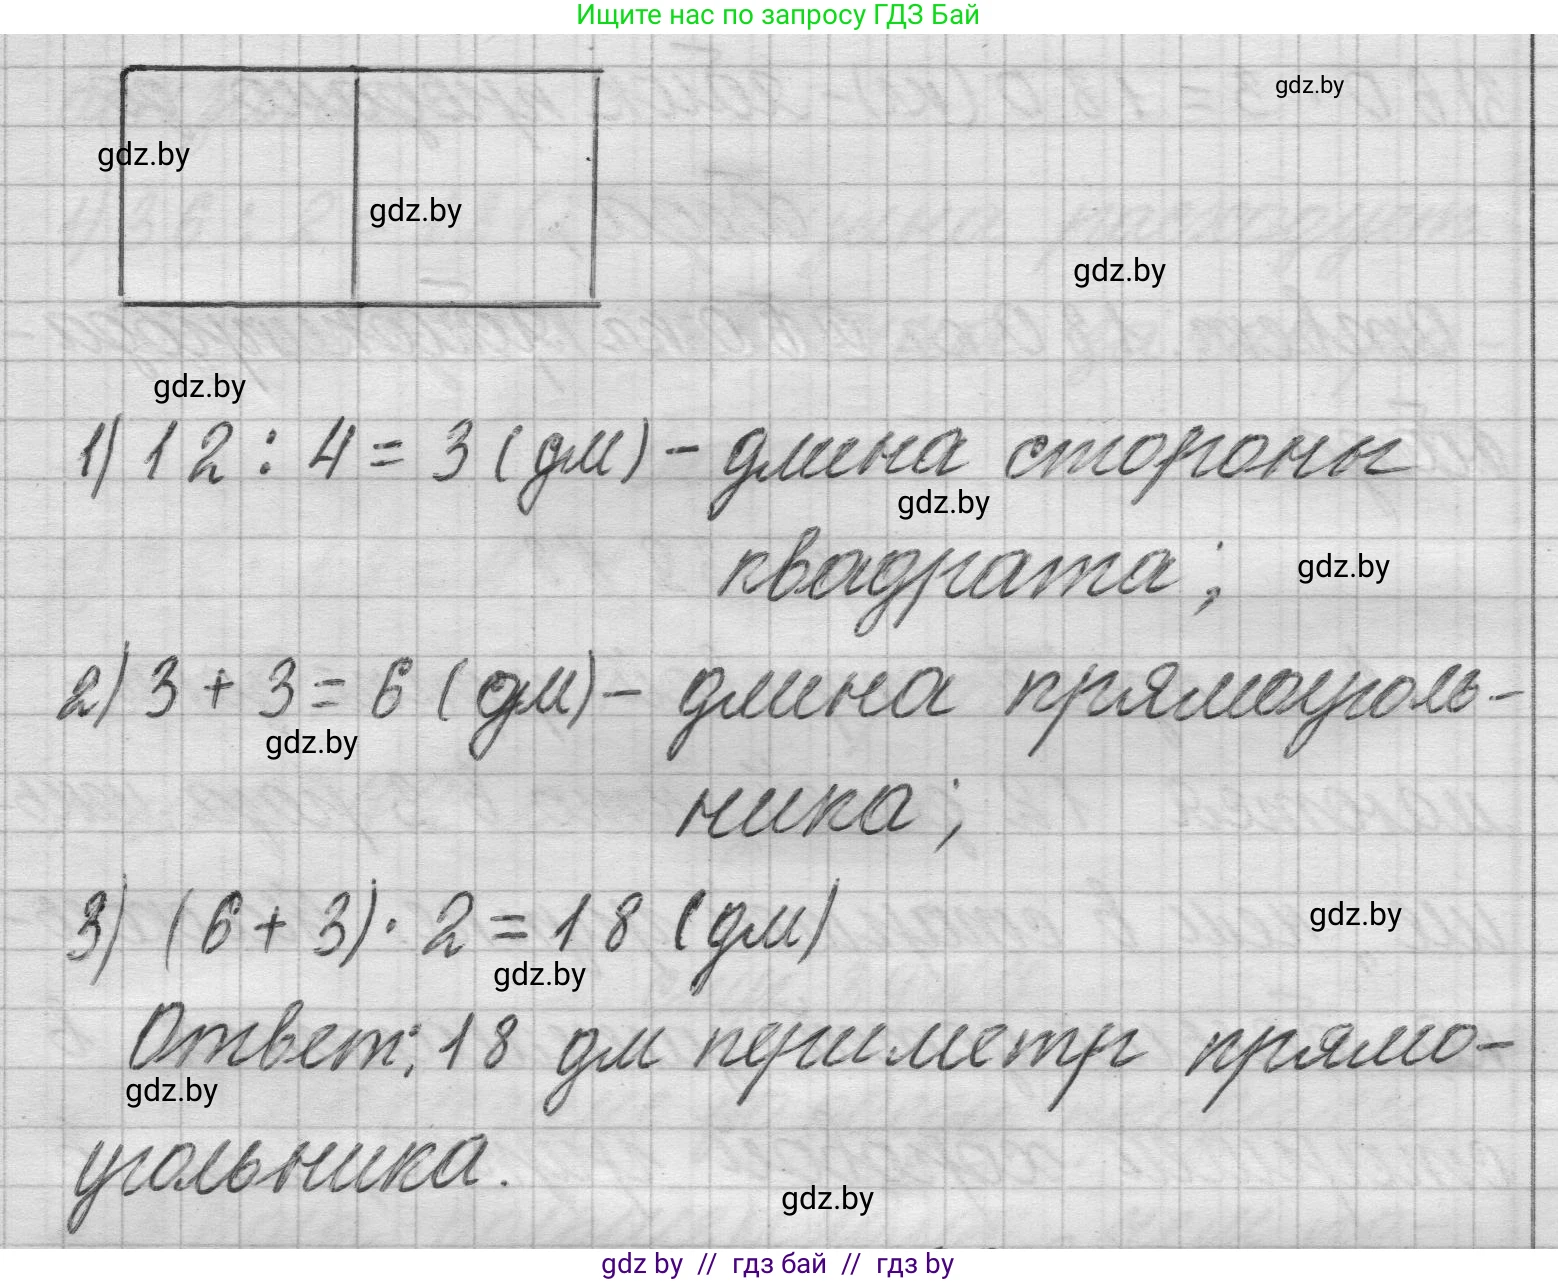 Ищите нас по запросу ГДЗ Бай
gdz.by
gdz.by
gdz.by
gdz.by
gdz.by
1) 12 : 4 = 3 (дм) - длина стороны
gdz.by
квадрата;
gdz.by
2) 3 + 3 = 6 (дм) - длина прямоуголь-
gdz.by
ника;
3) (6 + 3) · 2 = 18 (дм)
gdz.by
gdz.by
Ответ: 18 дм периметр прямо-
gdz.by
угольника.
gdz.by
gdz by // гдз бай // гдз by